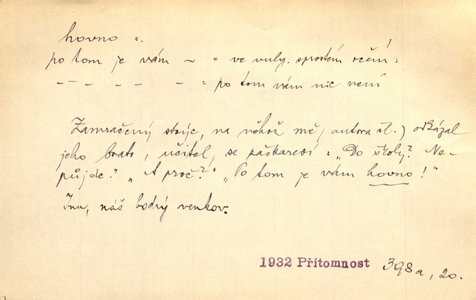 hovno s.
po tom je vám – ~ = ve vulg. sprostém rčení:
– – – – – – = po tom vám nic není
Zamračený strýc, na něhož mě, autora čl.) odkázal
jeho bratr, učitel, se paškaredí: „Do školy? Ne-
půjde.“ „A proč?“ „Po tom je vám hovno!“
Inu, náš bodrý venkov.
1932 Přítomnost 398a, 20.